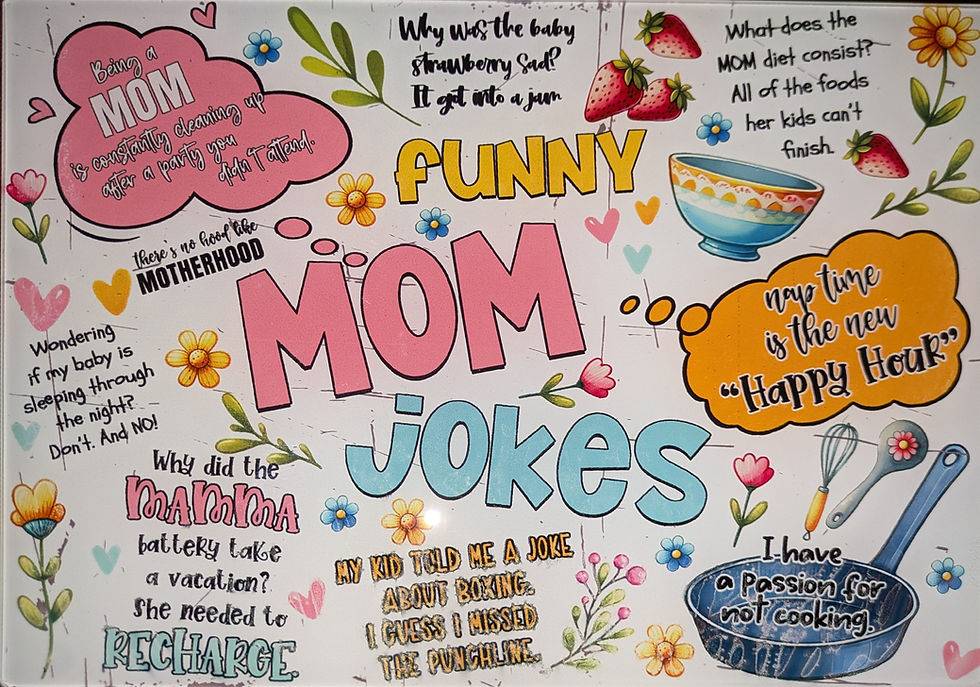 Being a
MOM
is constantly cleaning up
after a party you
didn't attend.
Why was the baby
strawberry sad?
It got into a jam
What does the
MOM diet consist?
All of the foods
her kids can't
finish.
FUNNY
MOM
jokes
there's no hood like
MOTHERHOOD
nap time
is the new
"Happy Hour"
Wondering
if my baby is
sleeping through
the night?
Don't. And NO!
Why did the
MAMMA
battery take
a vacation?
She needed to
RECHARGE.
MY KID TOLD ME A JOKE
ABOUT BOXING.
I GUESS I MISSED
THE PUNCHLINE.
I have
a passion for
not cooking.